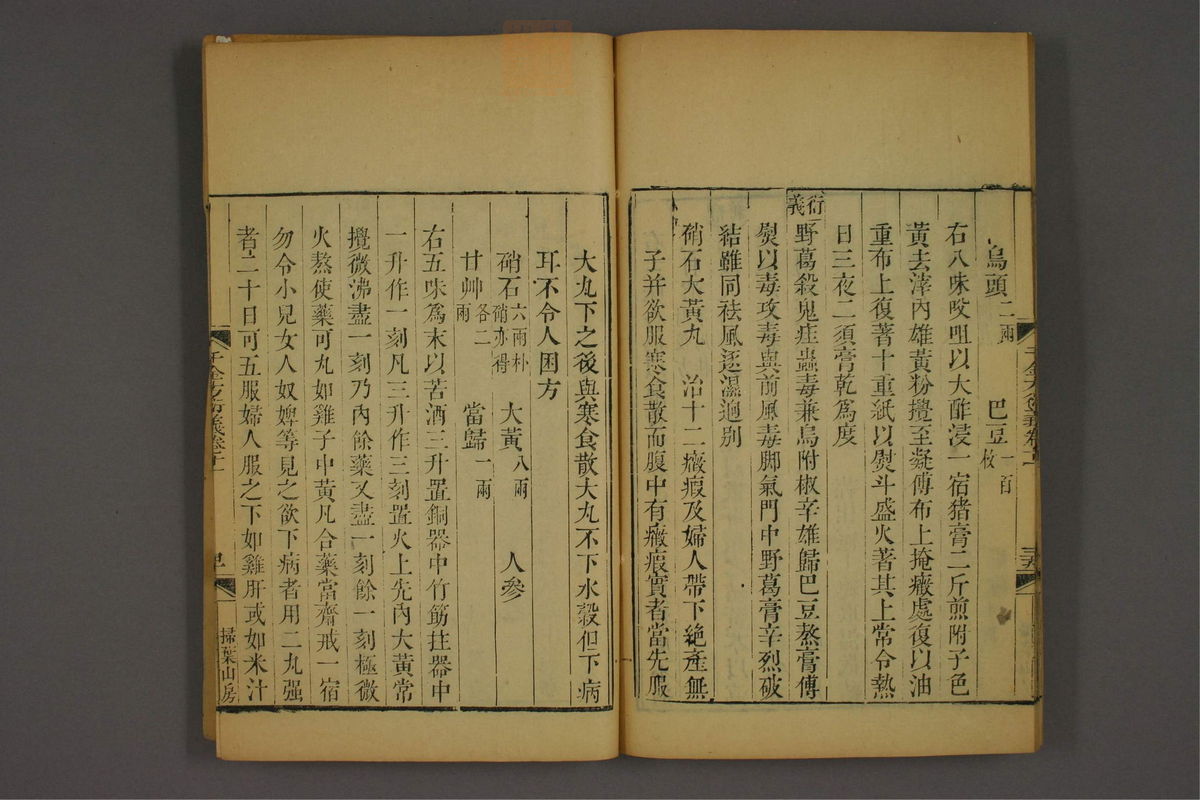 烏頭二兩 巴豆一百枚
右八味㕮咀以大酢浸一宿猪膏二斤煎附子色
黃去滓內雄黃粉攪至凝傅布上掩癥處復以油
重布上復著十重紙以熨斗盛火著其上常令熱
日三夜二須膏乾爲度
衍義
野葛殺鬼疰蟲毒兼烏附椒辛雄歸巴豆熬膏傅
熨以毒攻毒與前風毒脚氣門中野葛膏辛烈破
結雖同祛風逐濕迥别
硝石大黃丸 治十二癥瘕及婦人帶下絶產無
子并欲服寒食散而腹中有癥瘕實者當先服
大丸下之後與寒食散大丸不下水穀但下病
耳不令人困方
硝石六兩朴硝亦得 大黃八兩 人參
甘艸各二兩 當歸一兩
右五味爲末以苦酒三升置銅器中竹筯拄器中
一升作一刻凡三升作三刻置火上先內大黃常
攪微沸盡一刻乃內餘藥又盡一刻餘一刻極微
火熬使藥可丸如雞子中黃凡合藥當齋戒一宿
勿令小兒女人奴婢等見之欲下病者用二丸强
者二十日可五服婦人服之下如雞肝或如米汁
千金方衍義卷十一
掃葉山房